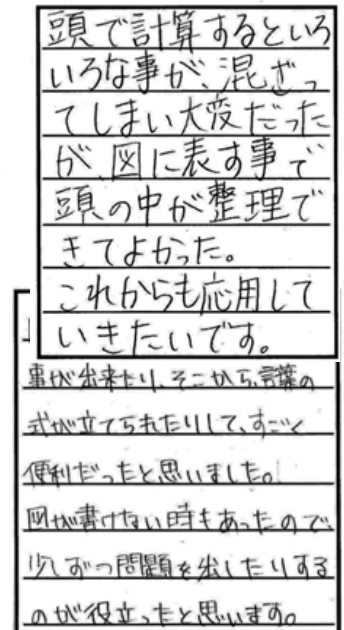 頭で計算するといろ
いろな事が、混ざっ
てしまい大変だった
が、図に表す事で
頭の中が整理で
きてよかった。
これからも応用して
いきたいです。
事が出来たり、そこから、言葉の
式が立てられたりして、すごく
便利だったと思いました。
図が書けない時もあったので、
少しずつ問題を出したりする
のが役立ったと思います。